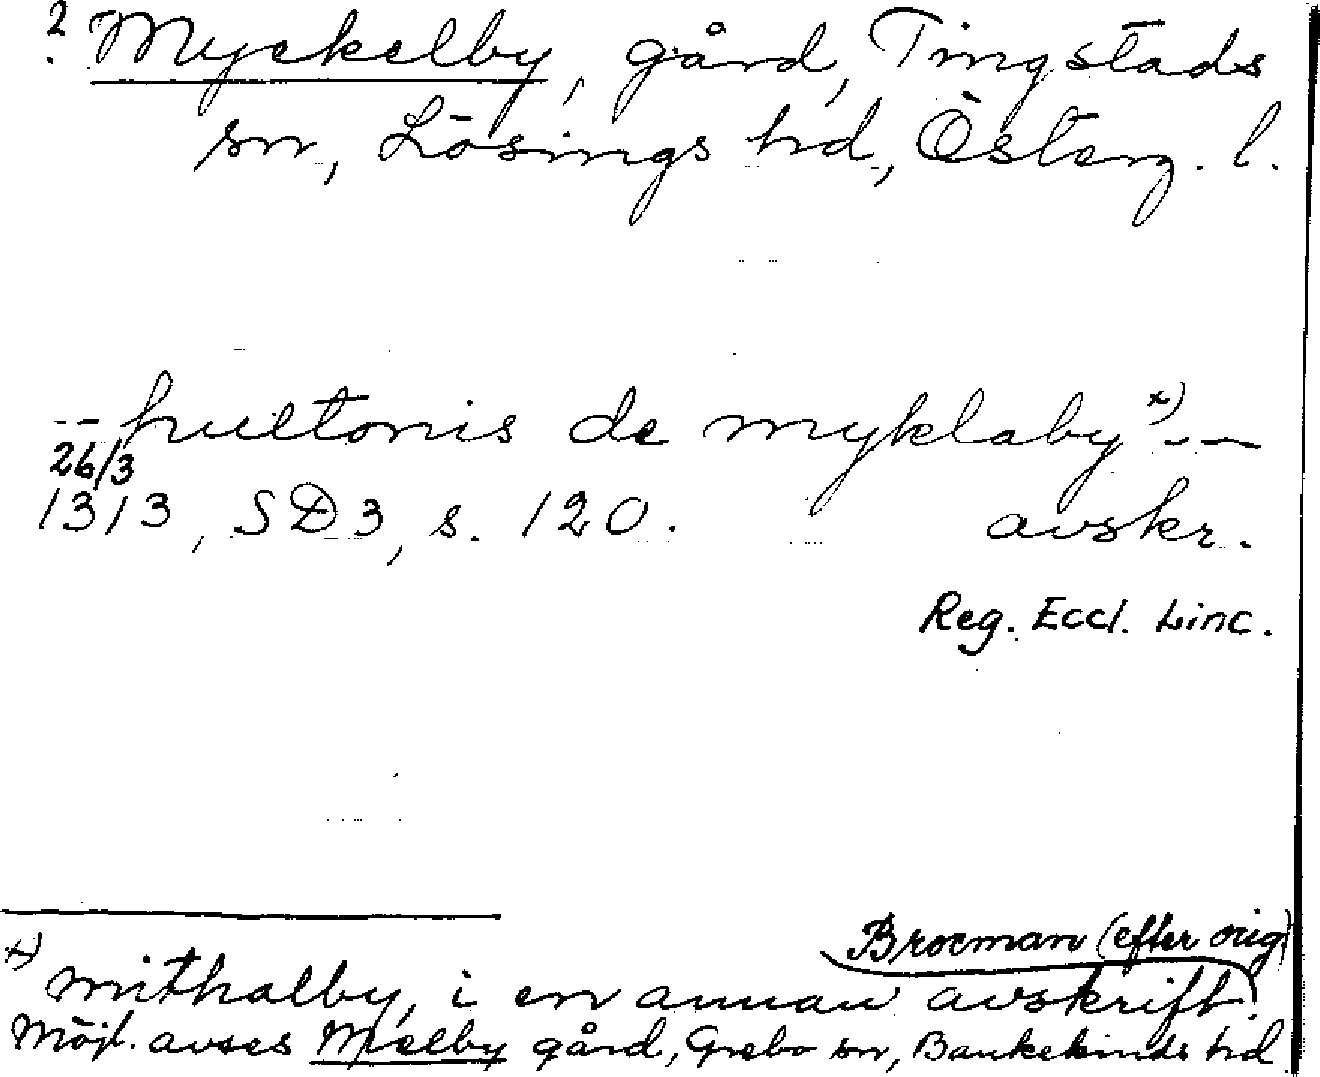 ? Myckelby, gård, Tingstads
sn, Lösings hd, Österg. l.
-- hultonis de myklaby x) ---
26/3
1313, SD3, s. 120. avskr.
Reg. Eccl. Linc.
Brocman (efter orig)
x) mithalby, i en annan avskrift.
Möjl. avses Mjelby gård, Grebo sn, Bankekinds hd